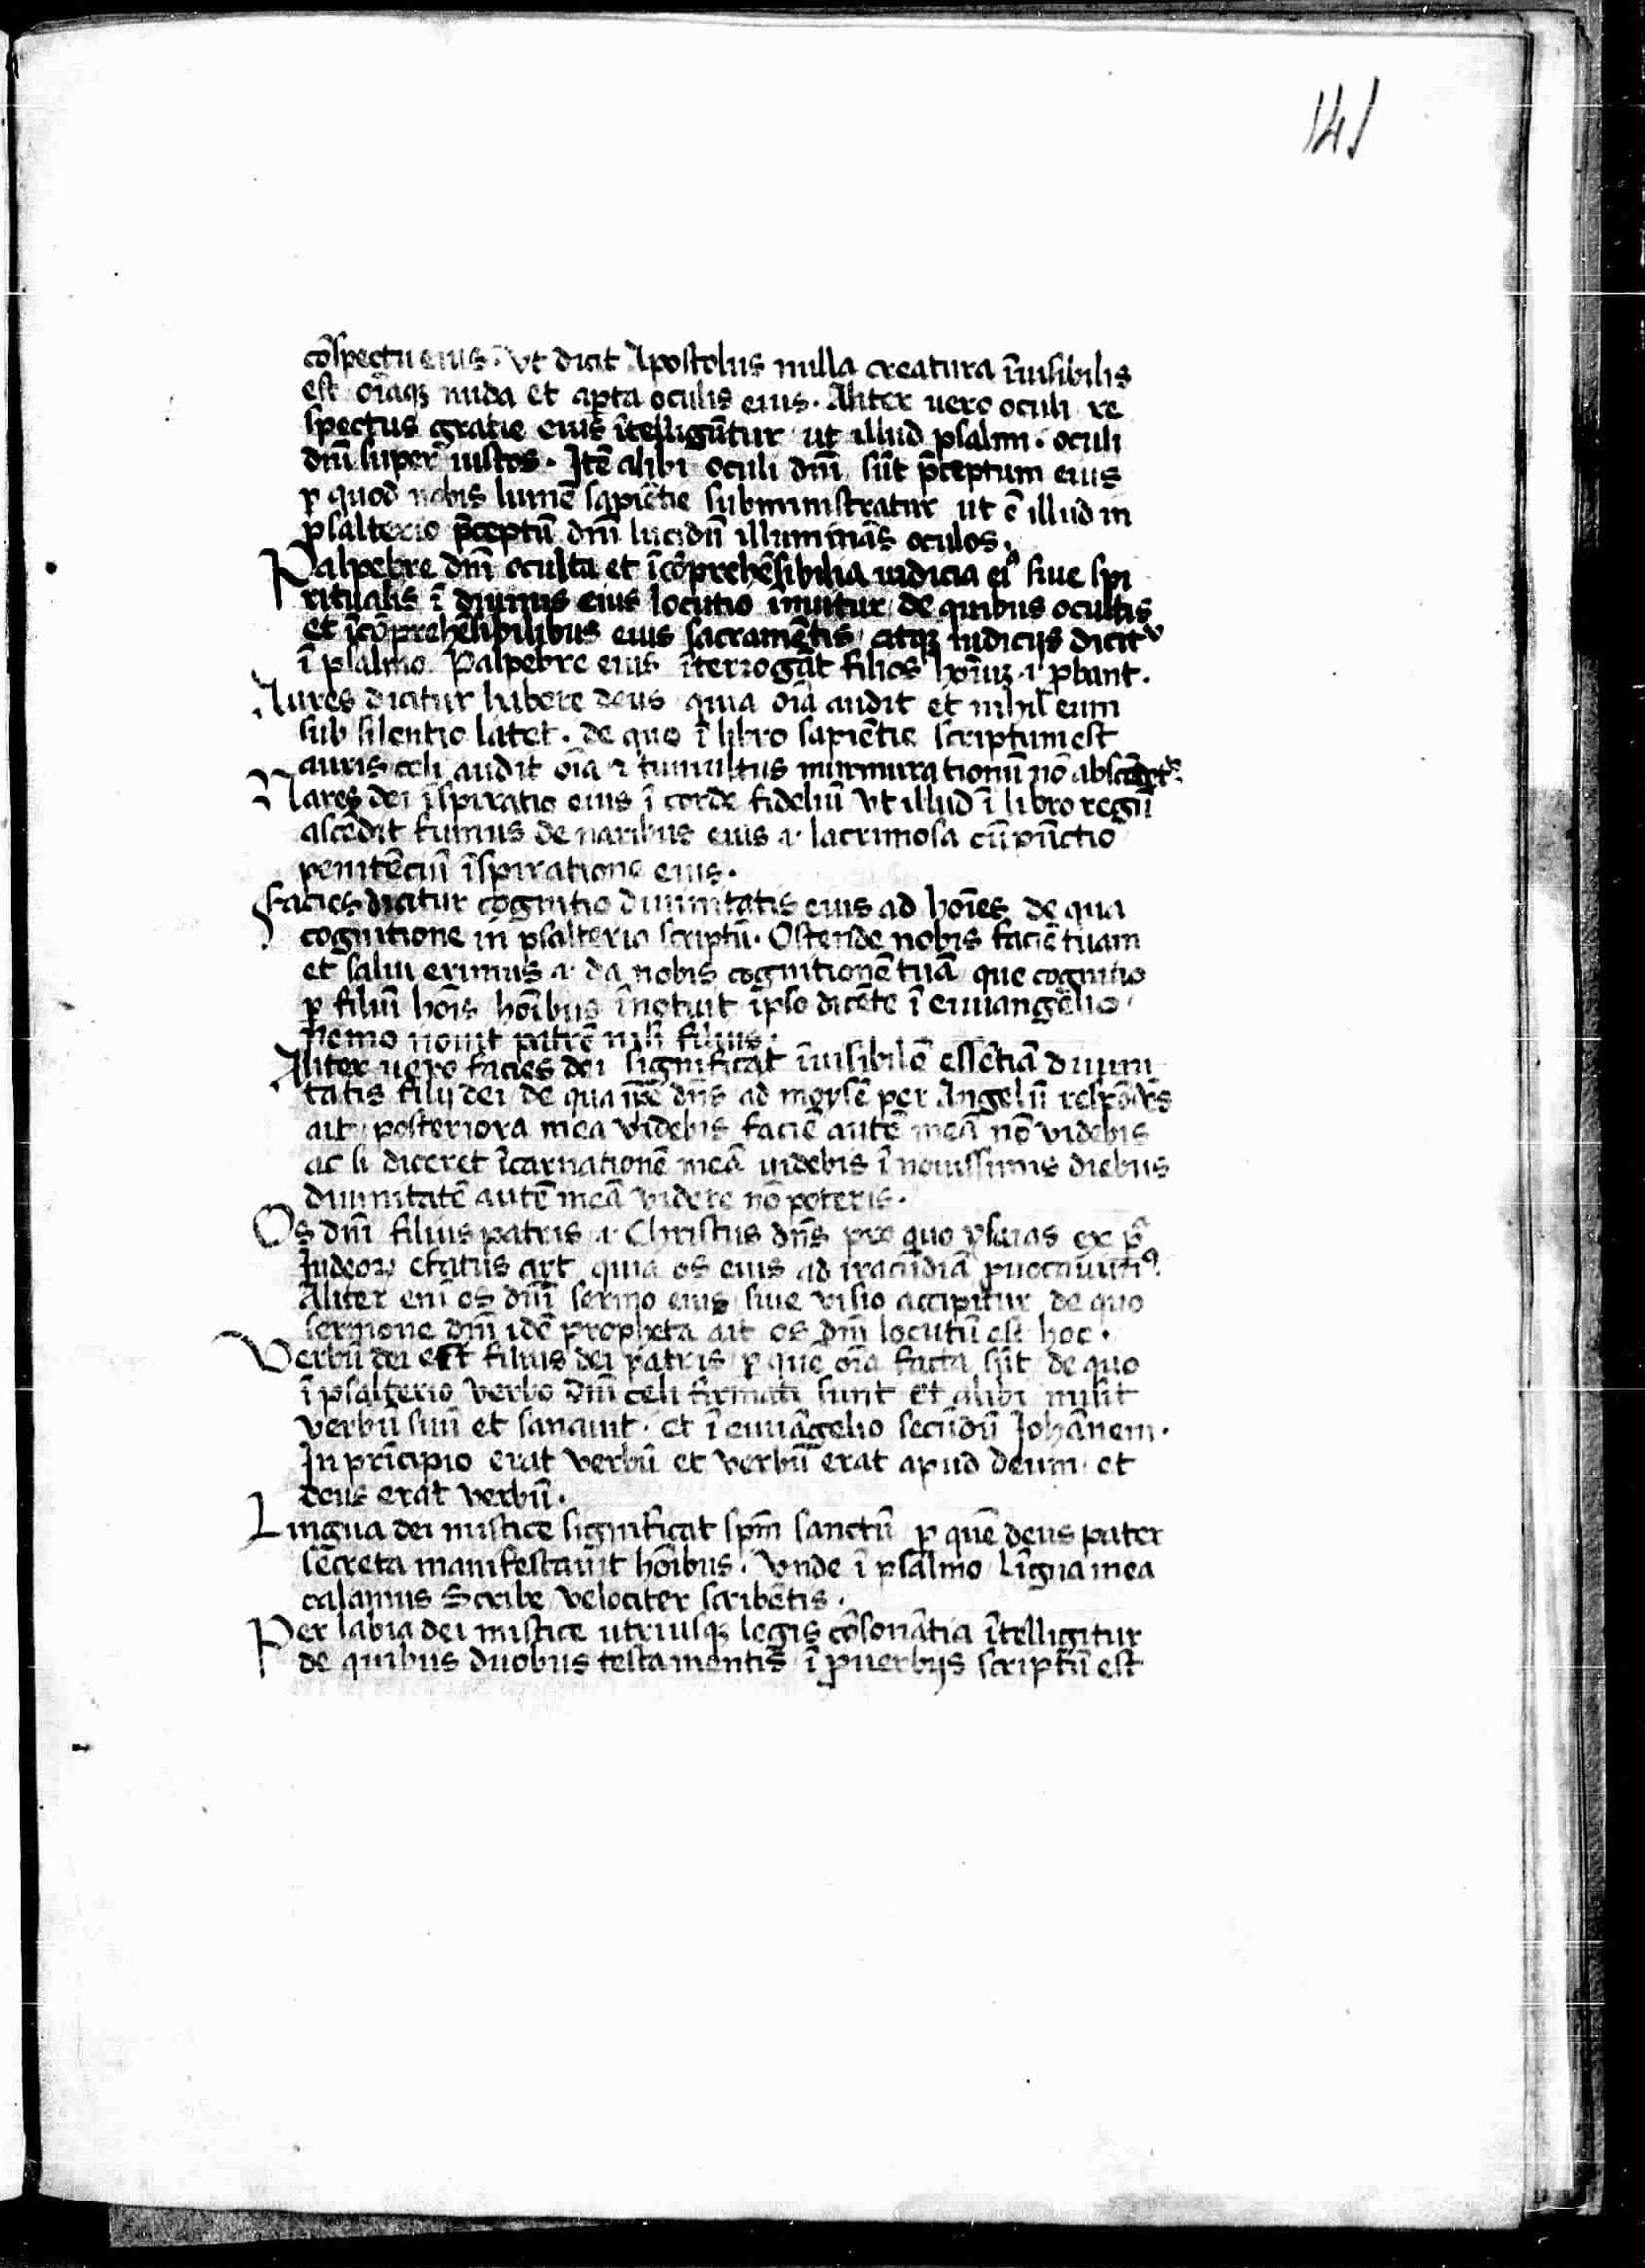 141
cōspectu eius. Vt dicit Apostolus nulla creatura īuisibilis
est oīaqꝫ nuda et aꝑta oculis eius. Aliter uero oculi re
spectus gratie eius ītelligūtur ut illud psalm. oculi
dnī super iustos. Itē alibi oculi dnī sūt p̄ceptum eius
ꝑ quod nobis lumē sapiētie subministratur ut ē illud in
psalterio p̄ceptū dnī lucidū illuminās oculos.
Palpebre dnī oculta et īcōprehēsibilia iudicia eiꝰ siue spi
ritualis ī diuinis eius locutio īnuitur de quibus ocultis
et īcōprehēsibilibus eius sacramētis atqꝫ iudicijs dicitᷣ
ī psalmo Palpebre eius īterrogāt filios hoīuꝫ .i. ꝓbant.
Aures dicitur habere deus quia oīa audit et nihil eum
sub silentio latet. de quo ī libro sapiētie scriptum est
auris celi audit oīa ⁊ tumultus murmurationū nō
Nares dei īspiratio eius ī corde fideliū Vt illud ī libro regū
ascēdit fumus de naribus eius .i. lacrimosa cūpūctio
penitēciū īspiratione eius.
Facies dicitur cognitio diuinitatis eius ad hoīes de qua
cognitione in psalterio scriptū. Ostende nobis faciē tuam
et salui erimus .i. da nobis cognitionē tuā que cognitio
ꝑ filiū hoīs hoībus īnotuit ipso dicēte ī euuangēlio
nemo nouit patrē nisi filius.
Aliter uero facies dei significat īuisibilē essētiā diuini
tatis filij dei de qua ip̄e dn̄s ad moysē per Angelū respōdēs
ait posteriora mea videbis faciē autē meā nō videbis
ac si diceret īcarnationē meā uidebis ī nouissimis diebus
diuinitatē autē meā videre nō poteris.
Os dnī filius patris .i. Christus dn̄s pro quo ysaias ex
Iudeoꝝ efatus ait quia os eius ad iracūdiā ꝓuocauimꝰ.
Aliter enī os dnī sermo eius siue visio accipitur de quo
sermone dnī idē propheta ait os dnī locutū est hoc.
Verbū dei est filius dei patris ꝑ quē oīa facta sūt de quo
ī psalterio verbo dnī celi firmati sunt et alibi misit
verbū suū et sanauit. et ī euuāgelio secūdū Johānem.
In prīcipio erat verbū et verbū erat apud deum et
deus erat verbū.
Lingua dei mistice significat spm̄ sanctū ꝑ quē deus pater
secreta manifestauit hoībus. Vnde ī psalmo līgua mea
calamus Scribe velociter scribētis.
Per labia dei mistice utriusqꝫ legis cōsonātia ītelligitur
de quibus duobus testamentis ī ꝓuerbijs scriptū est